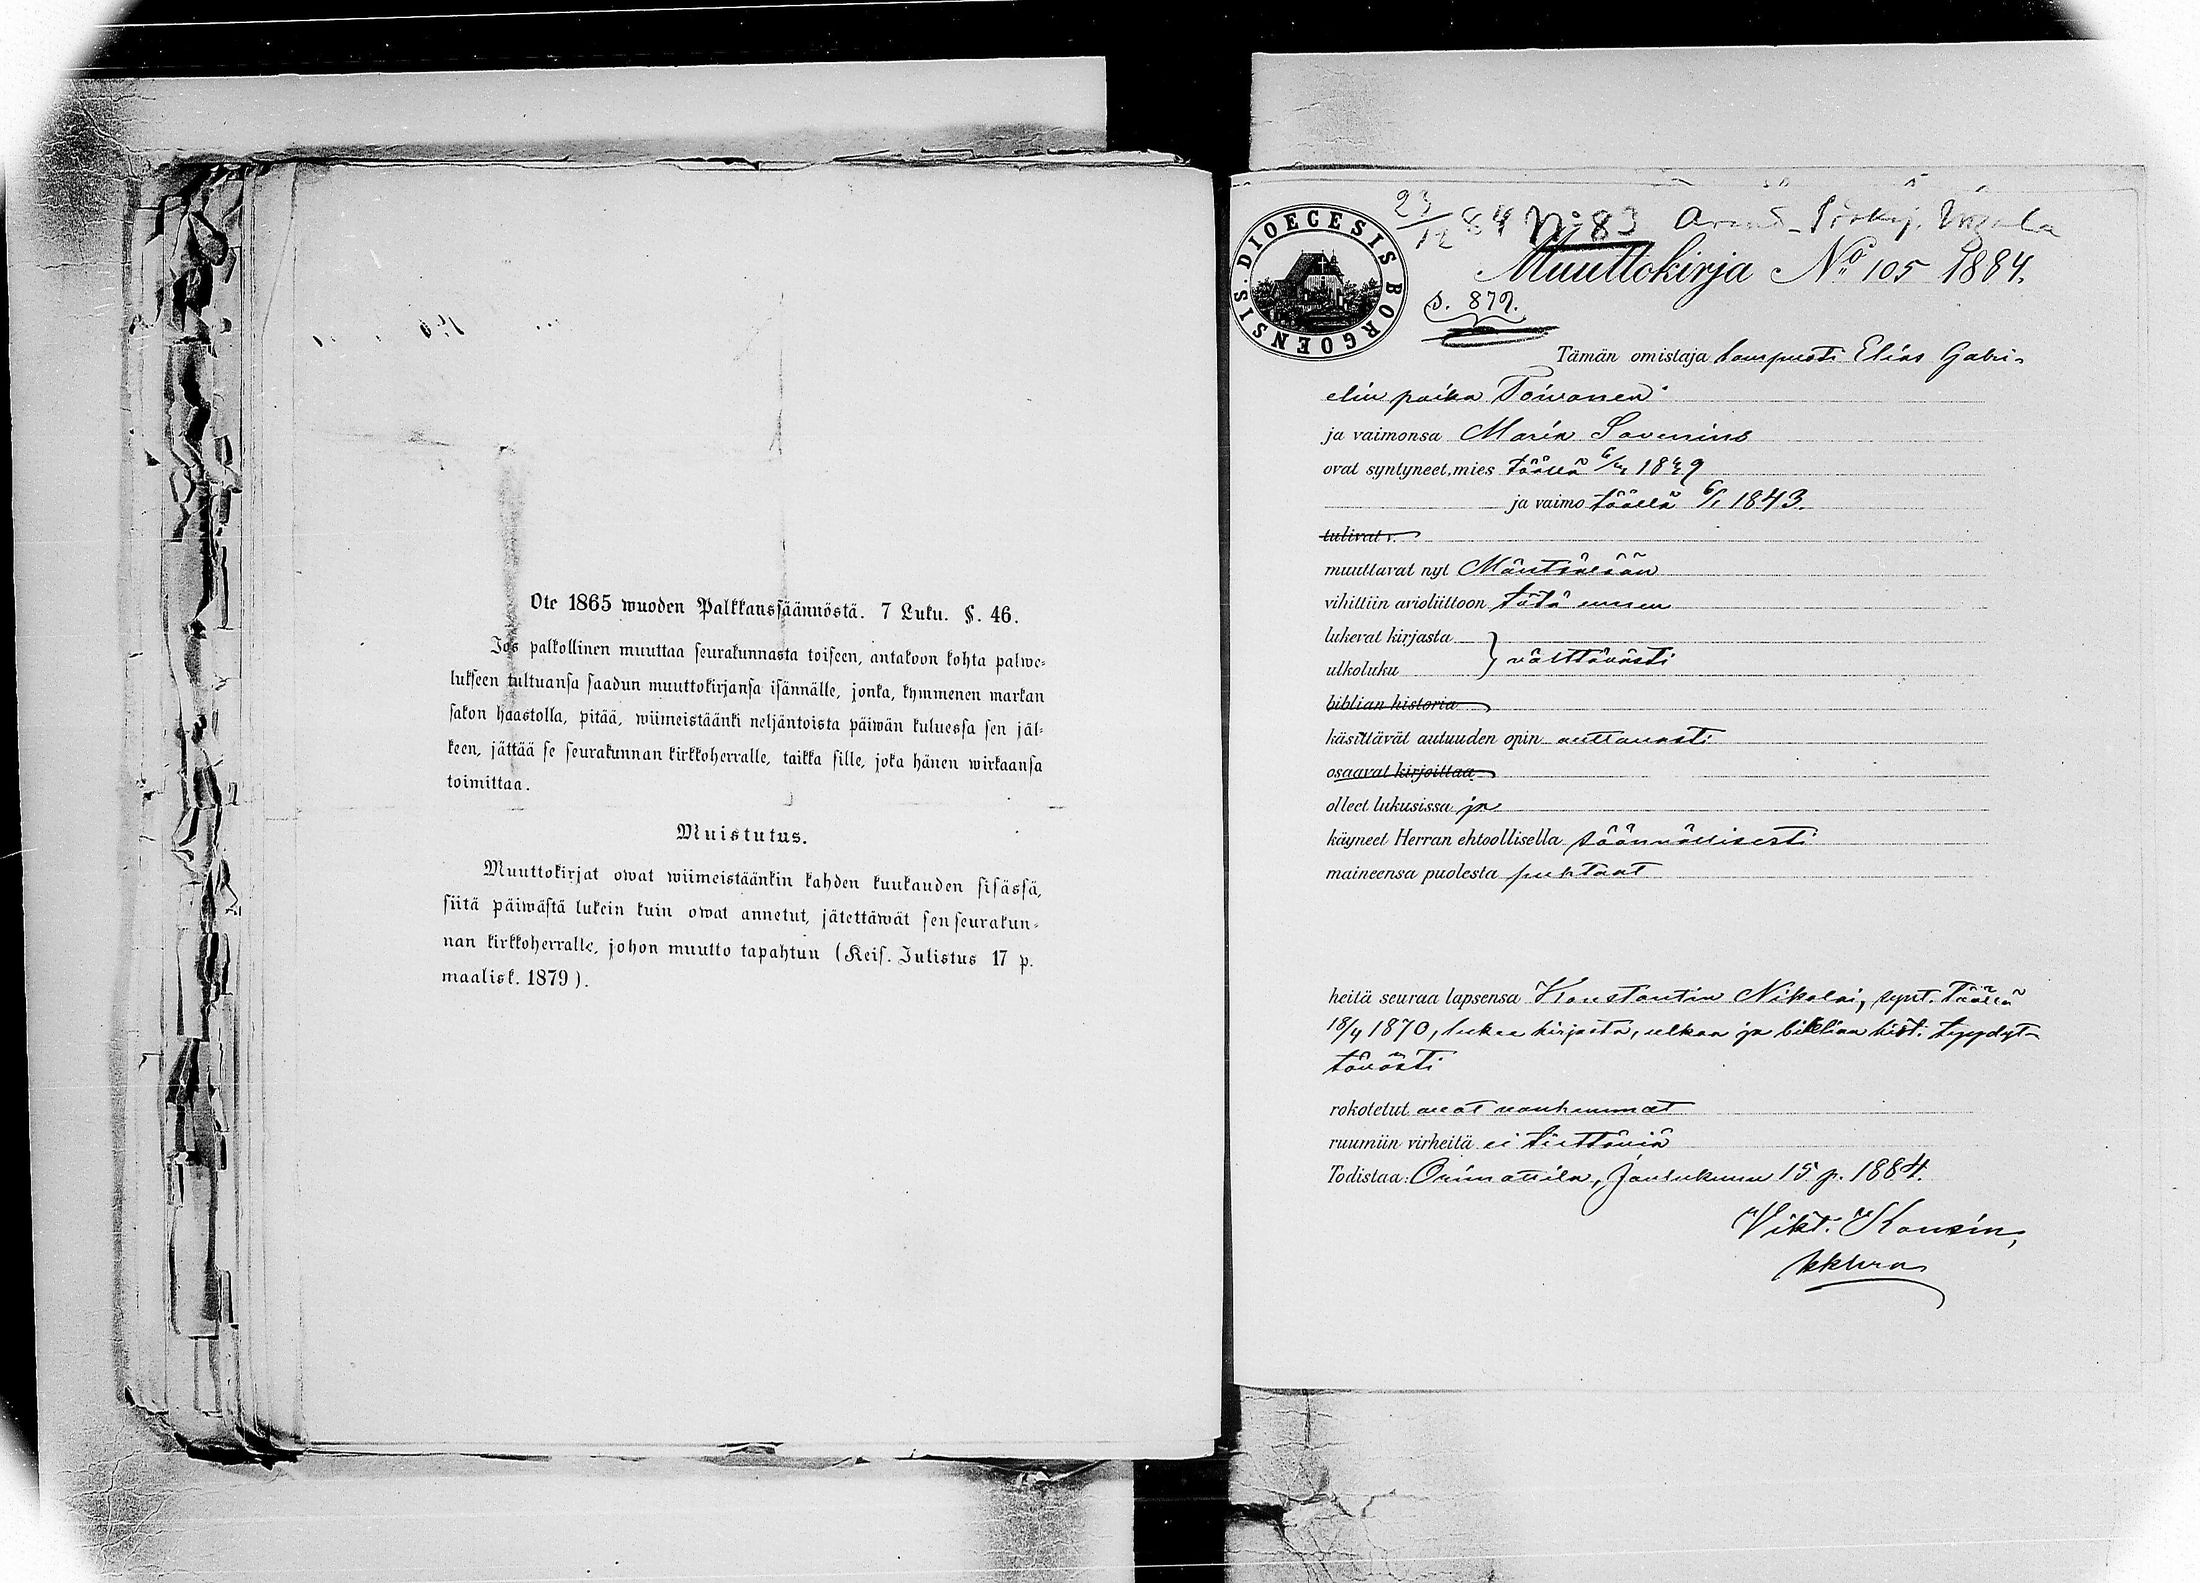 Ote 1865 wuoden Palkkanssäännöstä. 7 Luku. §. 46.
Jos palkollinen muuttaa seurakunnasta toiseen, antakoon kohta palwe-
lukseen tultuansa saadun muuttokirjansa isännälle, jonka, kymmenen markan
sakon haastolla, pitää, wiimeistäänki neljäntoista päiwän kuluessa sen jäl-
keen, jättää se seurakunnan kirkkoherralle, taikka sille, joka hänen wirkaansa
toimittaa.
Muistutus.
Muuttokirjat owat wiimeistäänkin kahden kuukauden sisässä,
siitä päiwästä lukein kuin owat annetut, jätettäwät sen seurakun-
nan kirkkoherralle, johon muutto tapahtuu (Keis. Julistus 17 p.
maalisk. 1879).
DIOECESIS BORGOENSIS.
23/12 84 No 83
Muuttokirja No 105 1884.
s. 879.
Tämän omistaja Elias Gabri-
elin poika Toivonen
ja vaimonsa Maria Savenius
ovat syntyneet, mies täällä 1849
ja vaimo täällä 6/1 1843.
tulivat v.
muuttavat nyt Mäntsälään
vihittiin avioliittoon tätä ennen
lukevat kirjasta
ulkoluku } välttävästi
biblian historia
käsittävät autuuden opin auttavasti
osaavat kirjoittaa
olleet lukusissa ja
käyneet Herran ehtoollisella säännöllisesti
maineensa puolesta puhtaat
heitä seuraa lapsensa Konstantin Nikolai, synt. täällä
18/4 1870, lukee kirjasta, ulkoa ja biblian hist. tyydyt-
tävästi
rokotetut ovat vanhemmat
ruumiin virheitä ei tiettäviä
Todistaa: Orimattila, Joulukuun 15 p. 1884.
Vikt. Kousin,
kkhra